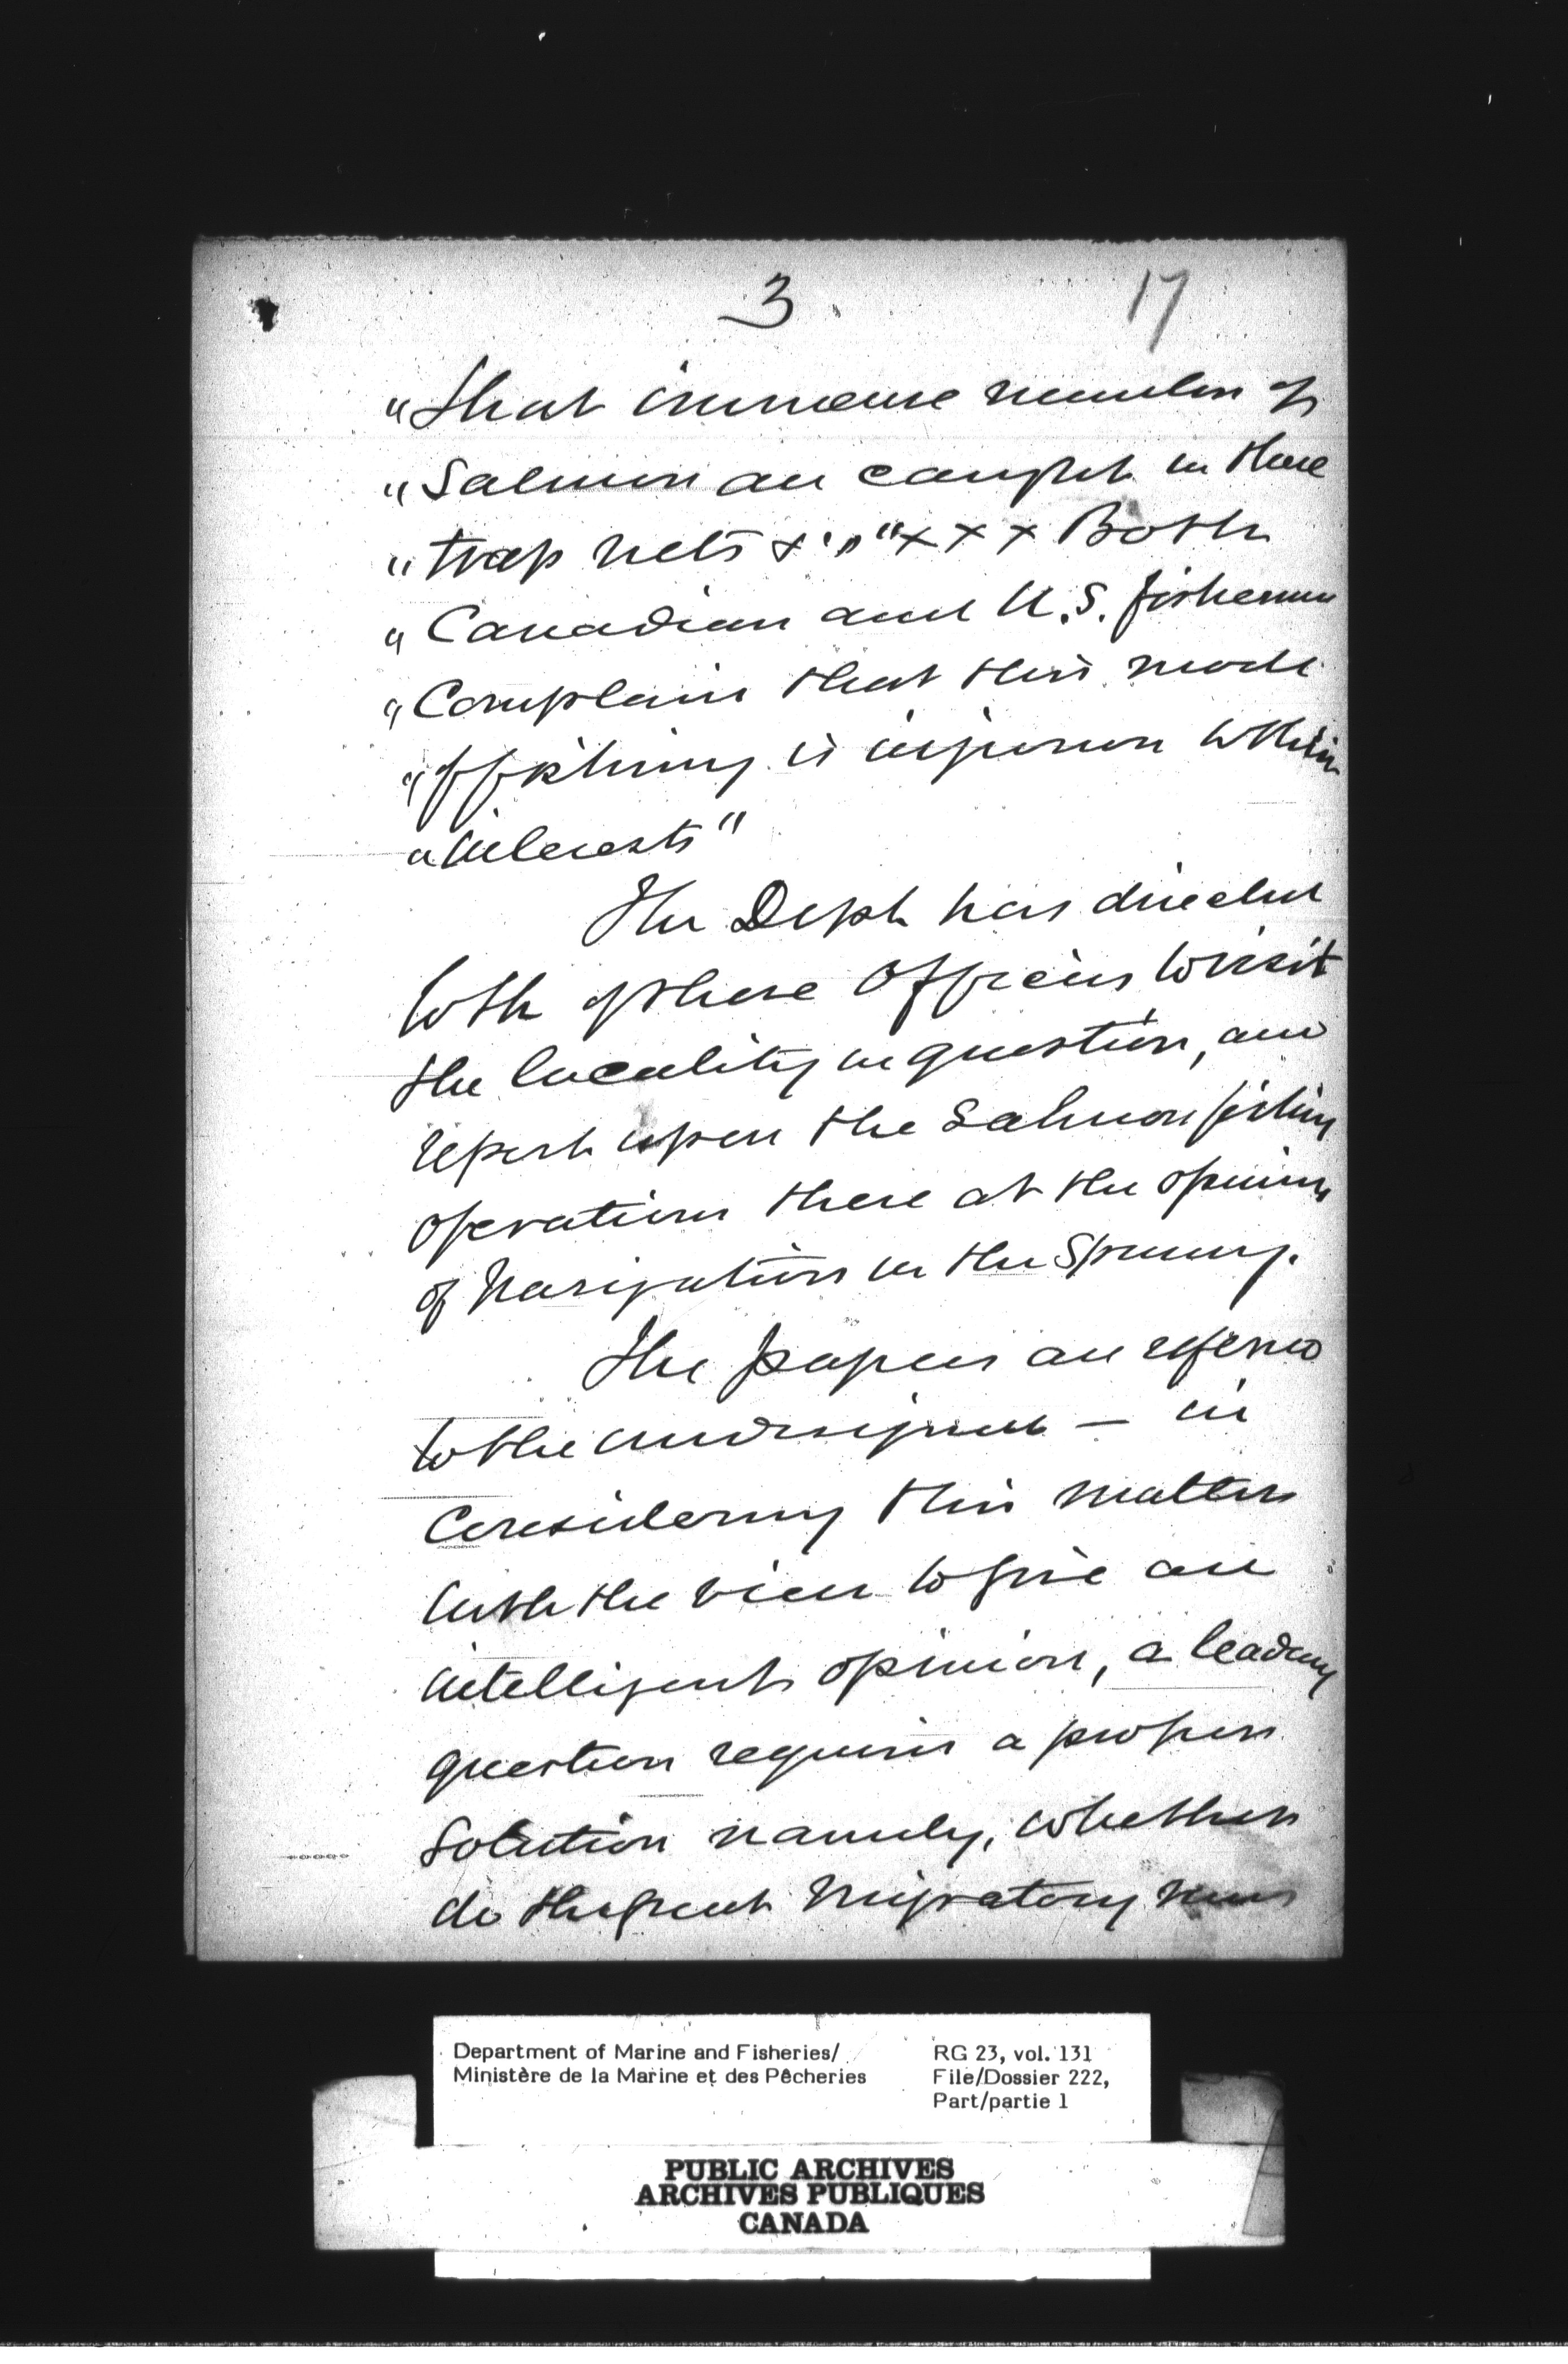 3. 17
"That immense number of
"Salmon are caught in these
"trap nets &c," "x x x Both
"Canadian and U.S. fishermen
"Complain that this mode
"of fishing is injurious to their
"interests"
The Dept has directed
both of these Officers to visit
the locality in question, and
report upon the Salmon fishing
operations there at the opening
of Navigation in the Spring.
The papers are referred
to the undersigned — in
Considering this matter
with the view to give an
intelligent opinion, a leading
question requires a proper
Solution namely, whether
do the great Migratory runs
Department of Marine and Fisheries/ RG 23, vol. 131
Ministère de la Marine et des Pêcheries File/Dossier 222,
Part/partie 1
PUBLIC ARCHIVES
ARCHIVES PUBLIQUES
CANADA